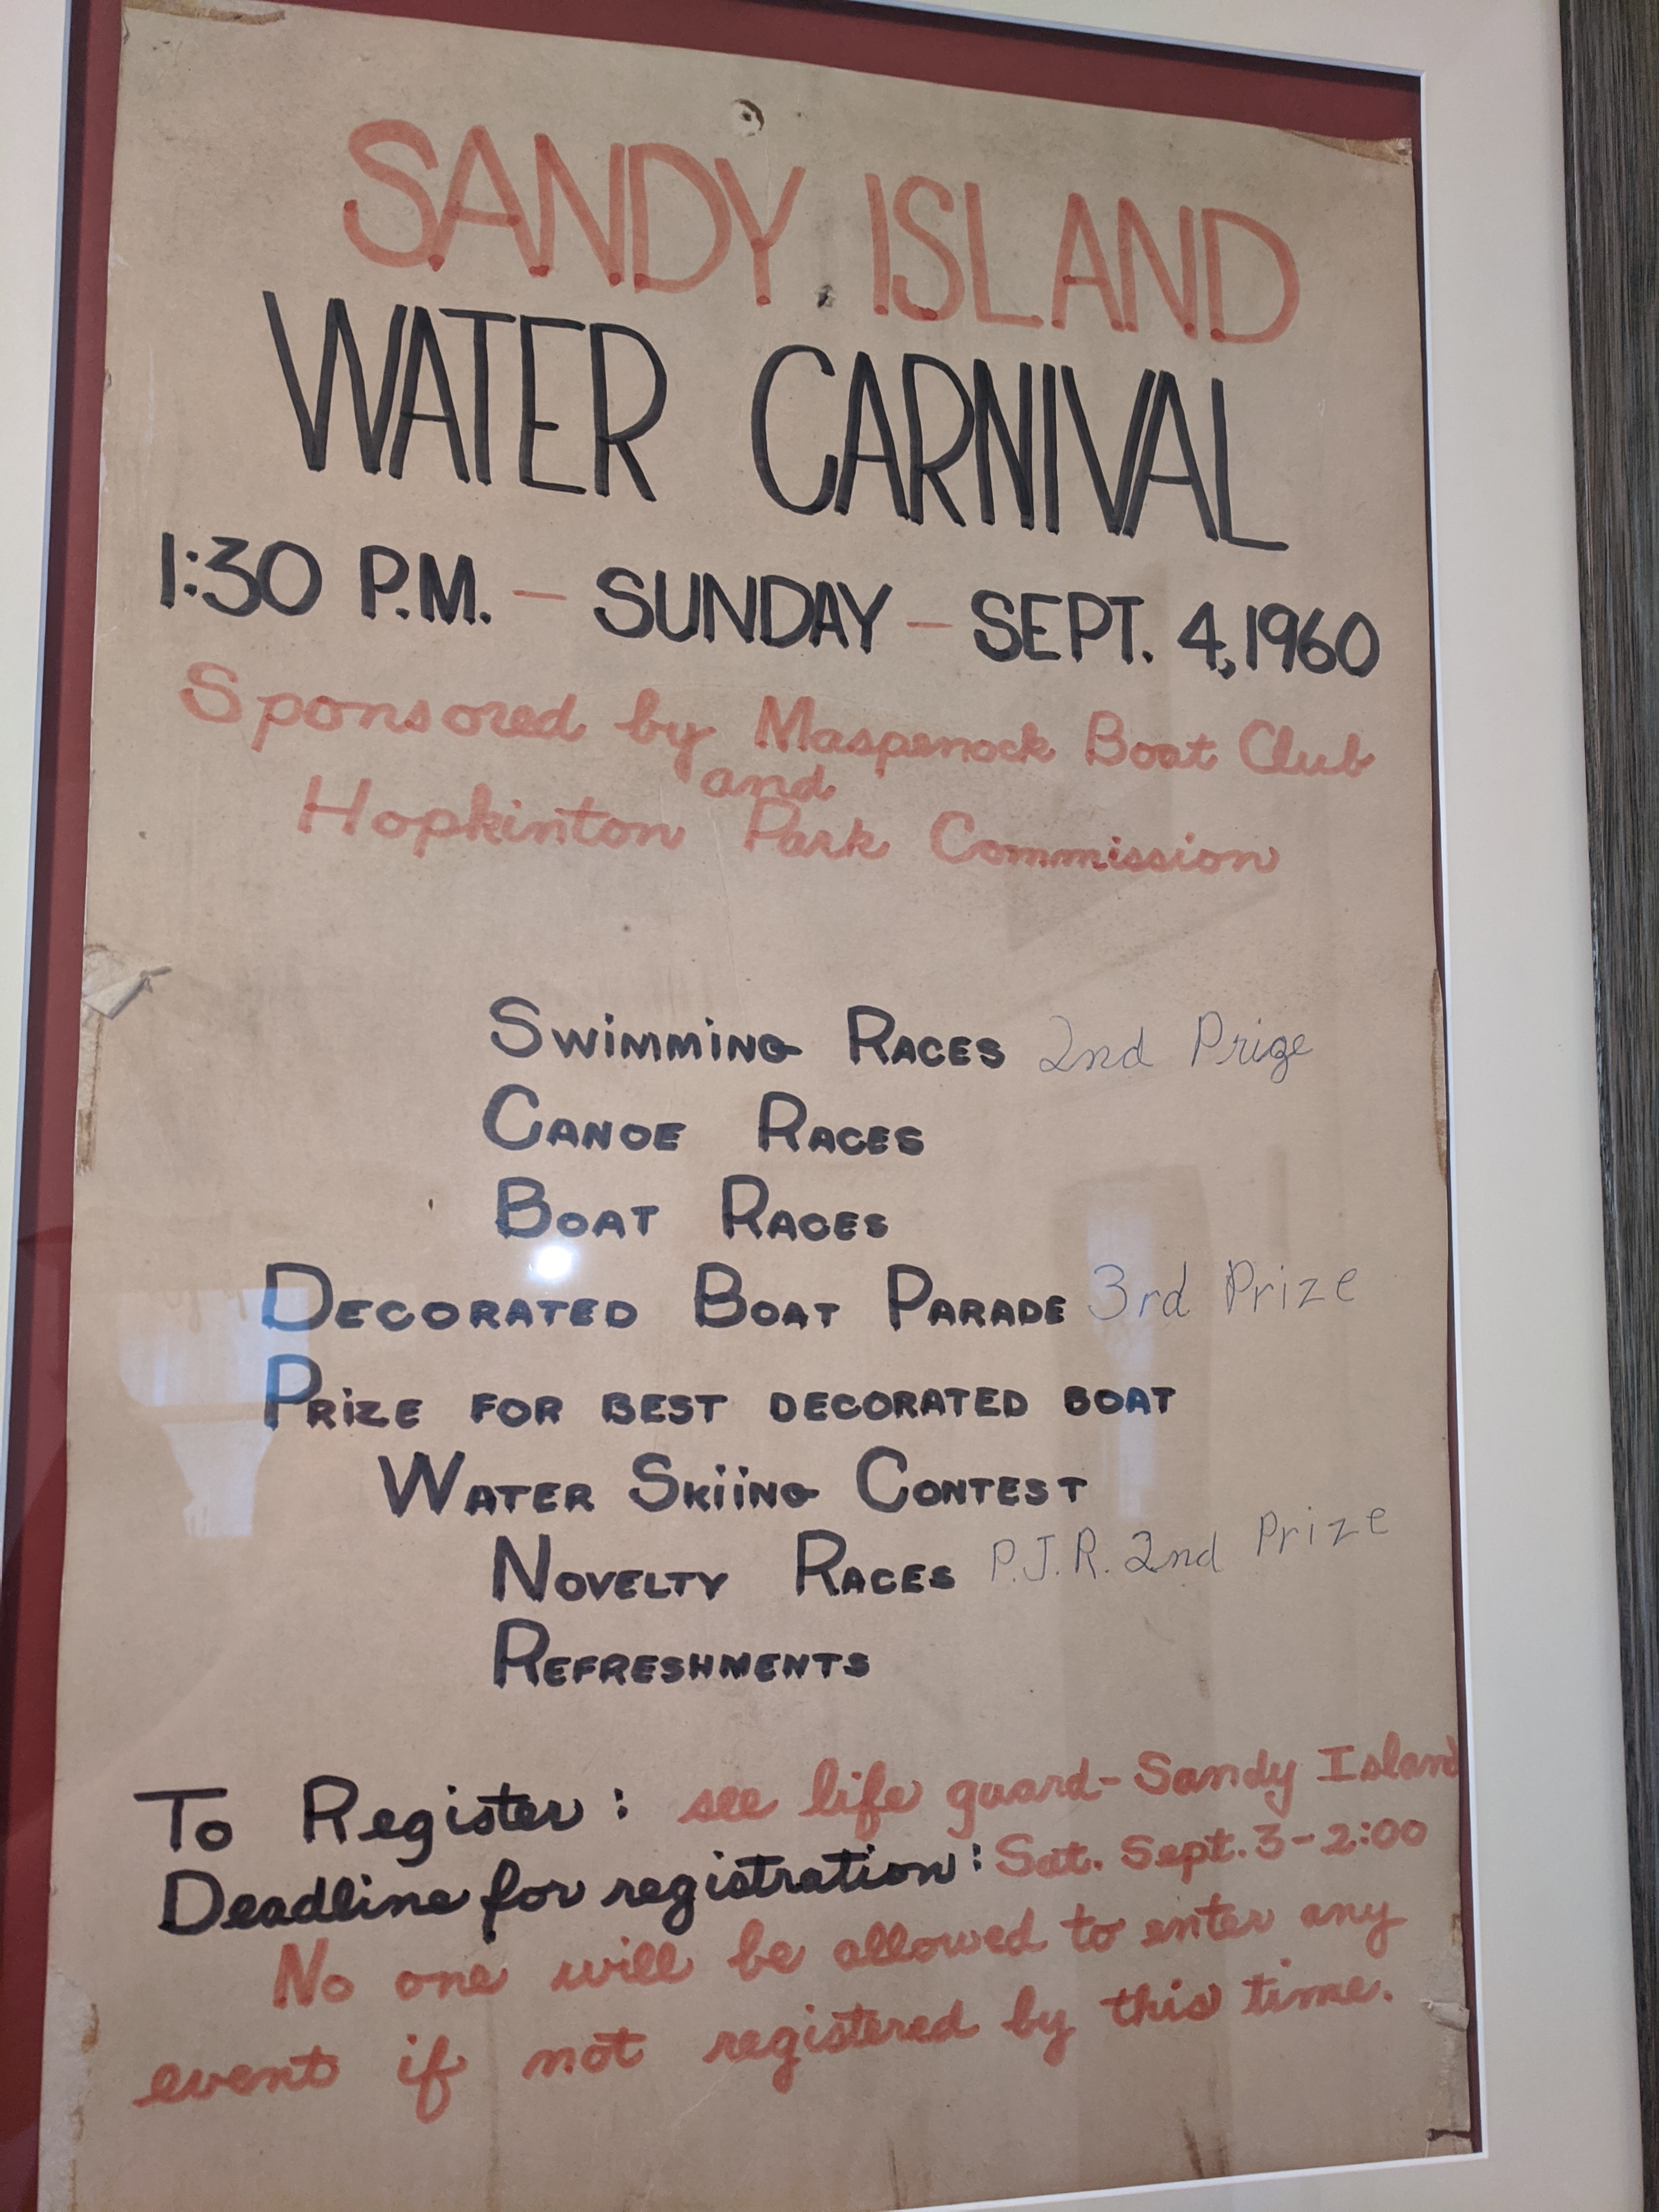 SANDY ISLAND
WATER CARNIVAL
1:30 P.M. - SUNDAY - SEPT. 4, 1960
Sponsored by Maspenock Boat Club
and
Hopkinton Park Commission
SWIMMING RACES 2nd Prize
CANOE RACES
BOAT RACES
DECORATED BOAT PARADE 3rd Prize
PRIZE FOR BEST DECORATED BOAT
WATER SKIING CONTEST
NOVELTY RACES P.J.R. 2nd Prize
REFRESHMENTS
To Register: see life guard - Sandy Island
Deadline for registration: Sat. Sept. 3 - 2:00
No one will be allowed to enter any
event if not registered by this time.